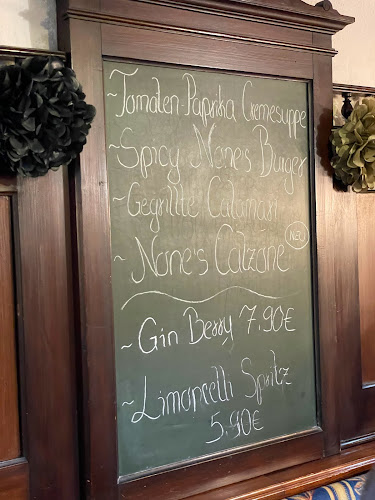 ~Tomaten-Paprika Cremesuppe
~Spicy None's Burger
~Gegrillte Calamari
~None's Calzone Neu
~Gin Berry 7.90€
~Limoncello Spritz
5.90€